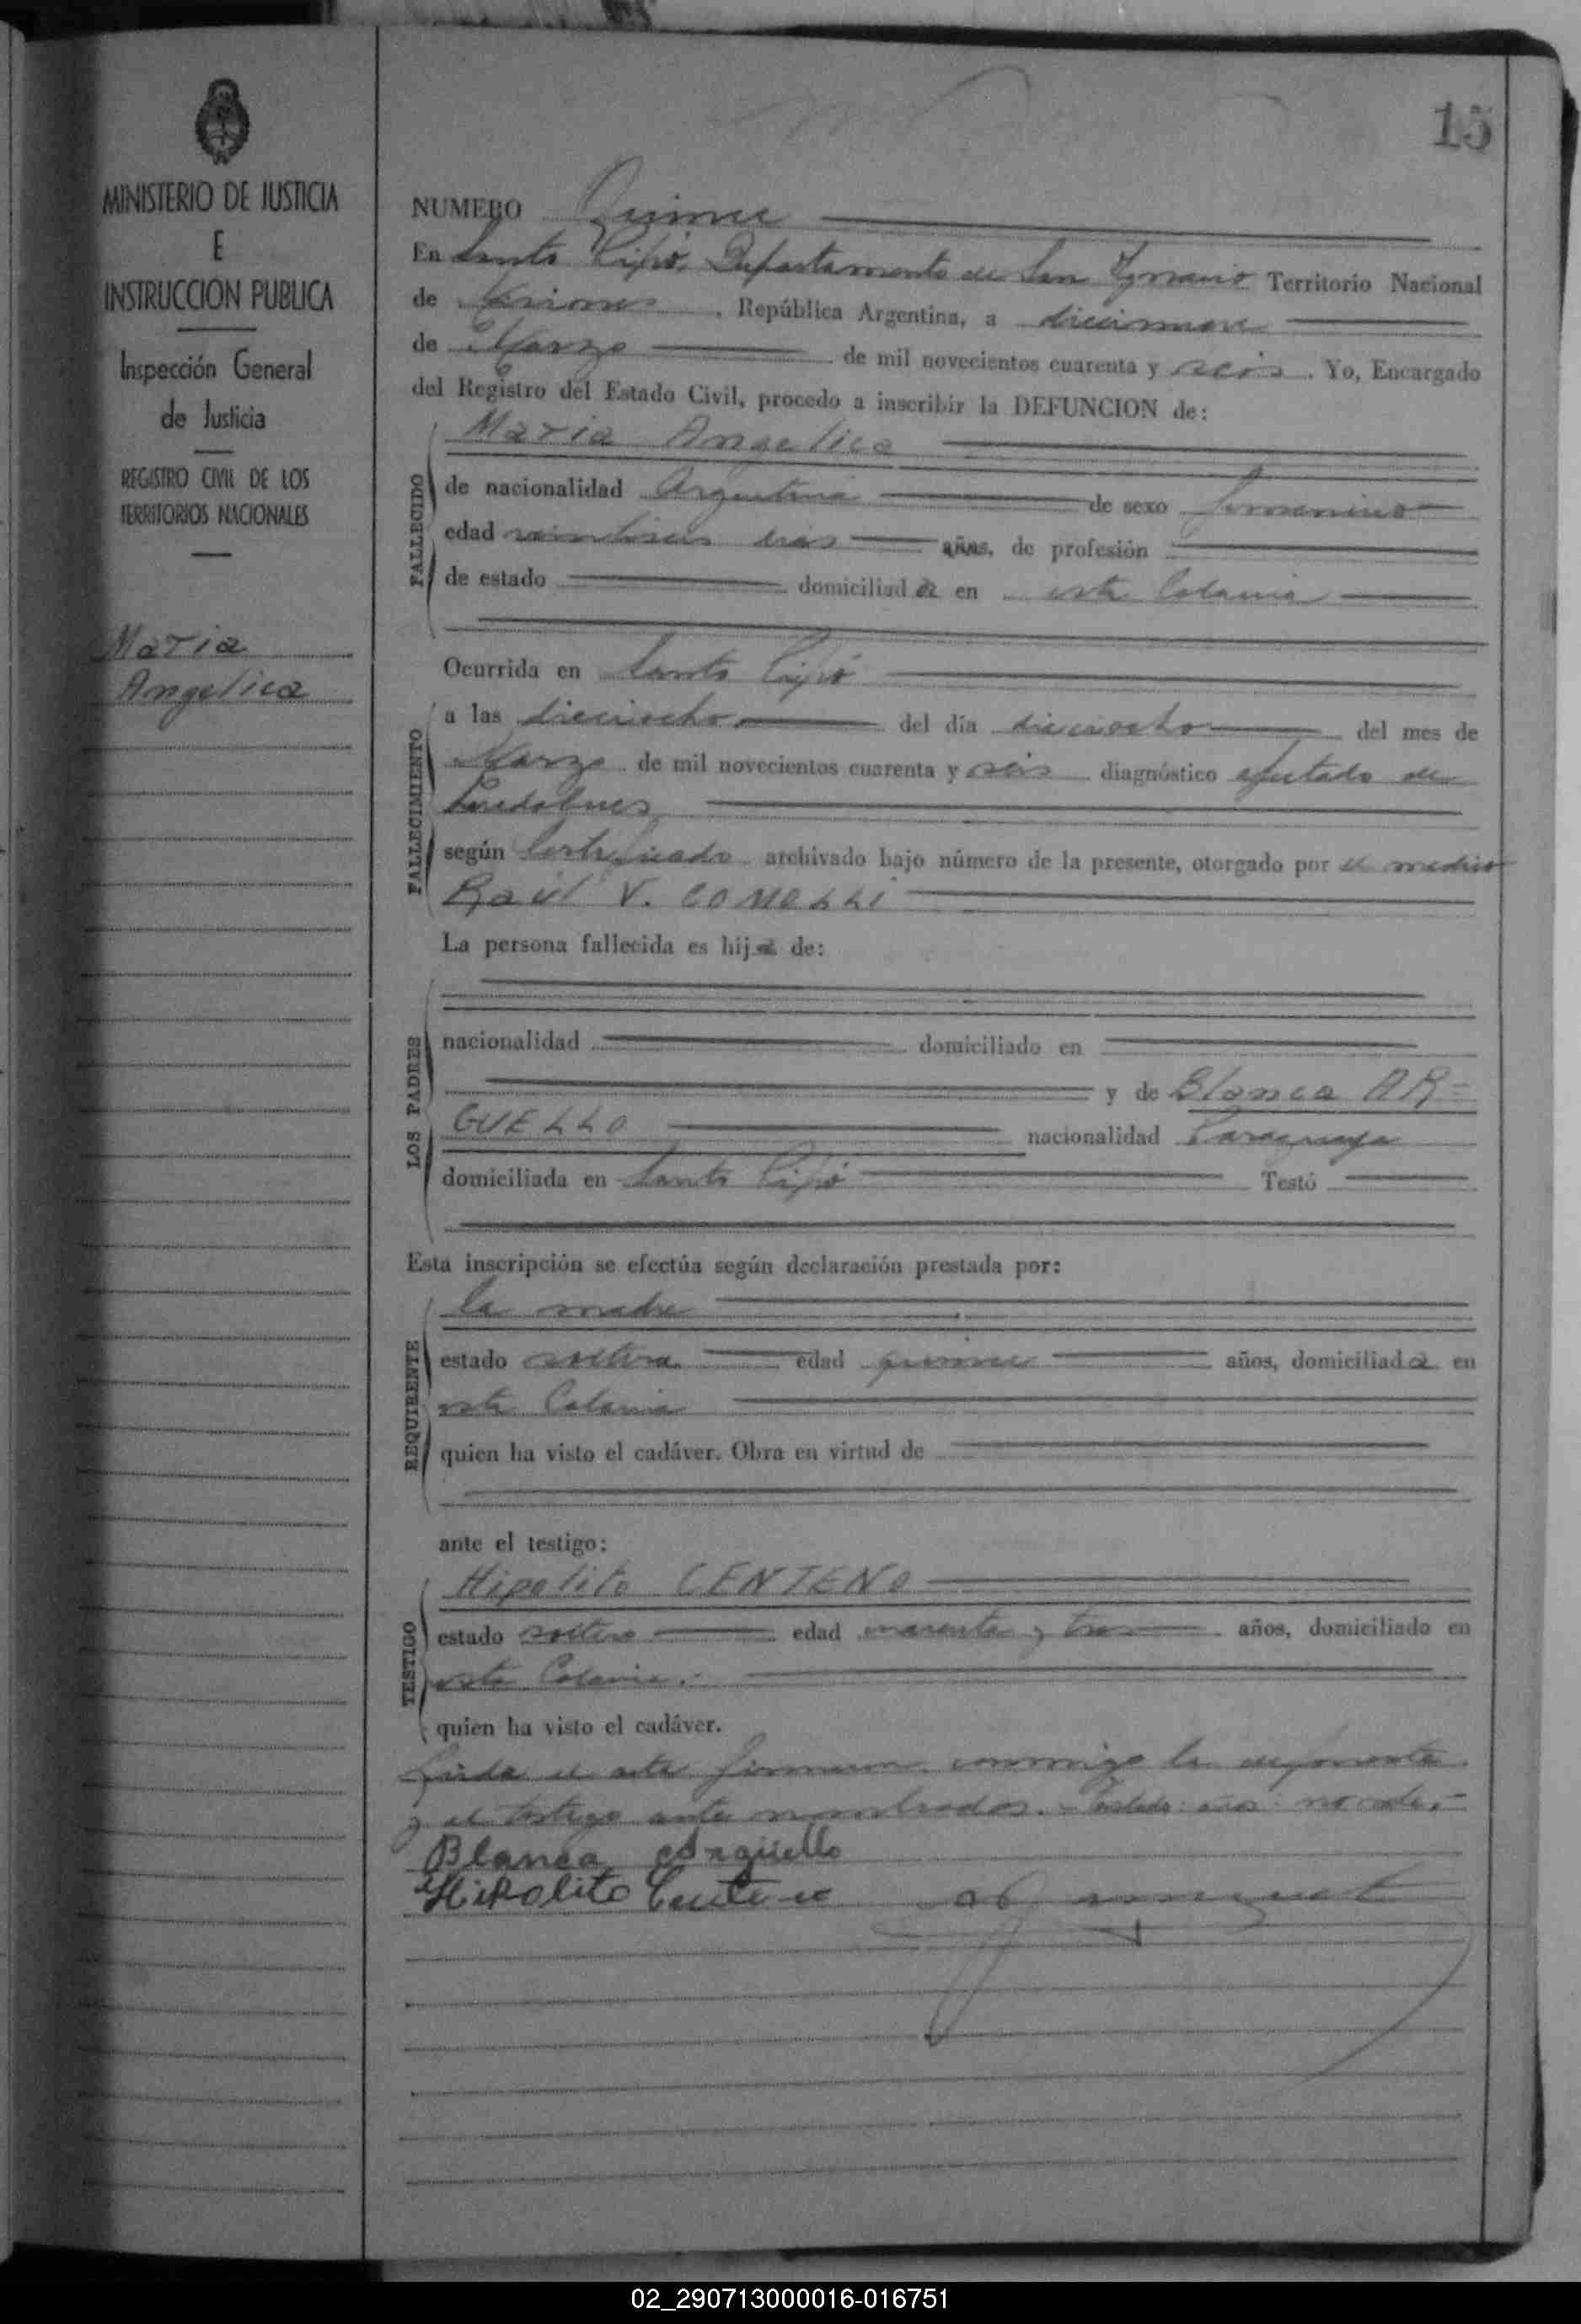 MINISTERIO DE JUSTICIA
E
INSTRUCCION PUBLICA
Inspección General
de Justicia
REGISTRO CIVIL DE LOS
TERRITORIOS NACIONALES
Maria
Angelica
15
NUMERO Quince
En Santo Pipó, Departamento de San Ygnacio Territorio Nacional
de Misiones, República Argentina, a diecinueve
de Marzo de mil novecientos cuarenta y seis. Yo, Encargado
del Registro del Estado Civil, procedo a inscribir la DEFUNCION de:
Maria Angelica
FALLECIDO
de nacionalidad Argentina de sexo femenino
edad veintiseis dias años, de profesión
de estado domiciliada en esta Colonia
Ocurrida en Santo Pipó
FALLECIMIENTO
a las dieciocho del día dieciocho del mes de
Marzo de mil novecientos cuarenta y seis diagnóstico de
según Certificado archivado bajo número de la presente, otorgado por el medico
Raúl V. COMOLLI
La persona fallecida es hija de:
LOS PADRES
nacionalidad domiciliado en
y de Blanca AR=
GUELLO nacionalidad Paraguaya
domiciliada en Santo Pipó Testó
Esta inscripción se efectúa según declaración prestada por:
REQUIRENTE
la madre
estado soltera edad quince años, domiciliada en
esta Colonia
quien ha visto el cadáver. Obra en virtud de
ante el testigo:
TESTIGO
Hipolito CENTENO
estado soltero edad cuarenta y tres años, domiciliado en
esta Colonia.
quien ha visto el cadáver.
Leida el acta firmaron conmigo la deponente
y el testigo ante nombrados.- Testado: años: no vale.-
Blanca Argüello
Hipolito Centeno
02_290713000016-016751